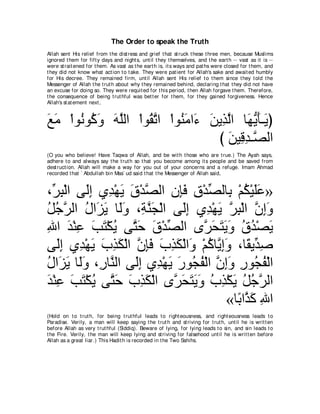 The Order to speak the Truth
Allah sent His relief from the distress and grief that struck these three men, because Muslims
ignored them for fifty days and nights, until they themselves, and the earth -- vast as it is --
were straitened for them. As vast as the earth is, its ways and paths were closed for them, and
they did not know what action to take. They were patient for Allah's sake and awaited humbly
for His decree. They remained firm, until Allah sent His relief to them since they told the
Messenger of Allah the truth about why they remained behind, declaring that they did not have
an excuse for doing so. They were requited for this period, then Allah forgave them. Therefore,
the consequence of being truthful was better for them, for they gained forgiveness. Hence
Allah's statement next,
(يَـأَيُّهَا الَّذِينَ ءَامَنُواْ اتَّقُواْ اللَّهَ وَكُونُواْ مَعَ
الصَّـدِقِينَ )
(O you who believe! Have Taqwa of Allah, and be with those who are true.) The Ayah says,
adhere to and always say the truth so that you become among its people and be saved from
destruction. Allah will make a way for you out of your concerns and a refuge. Imam Ahmad
recorded that `Abdullah bin Mas`ud said that the Messenger of Allah said,
«عَلَيْكُمْ بِالصِّدْقِ فَإِن الصِّدْقَ يَهْدِي إِلَى الْبِرِّ،
وَإِنَّ الْبِرَّ يَهْدِي إِلَى الْجَنَّةِ، وَلَا يَزَالُ الرَّجُلُ
يَصْدُقُ وَيَتَحَرَّى الصِّدْقَ حَتَّى يُكْتَبَ عِنْدَ اللهِ
صِدِّيقًا، وَإِيَّاكُمْ وَالْكَذِبَ فَإِنَّ الْكَذِبَ يَهْدِي إِلَى
الْفُجُورِ وَإِنَّ الْفُجُورَ يَهْدِي إِلَى النَّارِ، وَلَا يَزَالُ
الرَّجُلُ يَكْذِبُ وَيَتَحَرَّى الْكَذِبَ حَتَّى يُكْتَبَ عِنْدَ
اللهِ كَذَّابًا»
(Hold on to truth, for being truthful leads to righteousness, and righteousness leads to
Paradise. Verily, a man will keep saying the truth and striving for truth, until he is written
before Allah as very truthful (Siddiq). Beware of lying, for lying leads to sin, and sin leads to
the Fire. Verily, the man will keep lying and striving for falsehood until he is written before
Allah as a great liar.) This Hadith is recorded in the Two Sahihs.